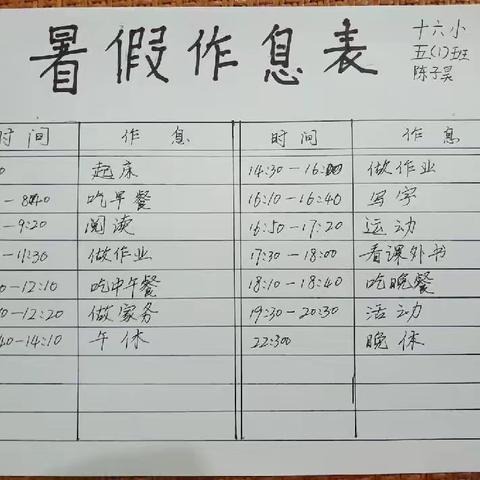 暑假作息表
十六小
五(1)班
陈子昊
时间 作息 时间 作息
0 起床 14:30—16:00 做作业
—8:40 吃早餐 16:10—16:40 写字
—9:20 阅读 16:50—17:20 运动
—11:30 做作业 17:30—18:00 看课外书
0—12:10 吃中午餐 18:10—18:40 吃晚餐
0—12:20 做家务 19:30—20:30 活动
40—14:10 午休 22:300 晚休